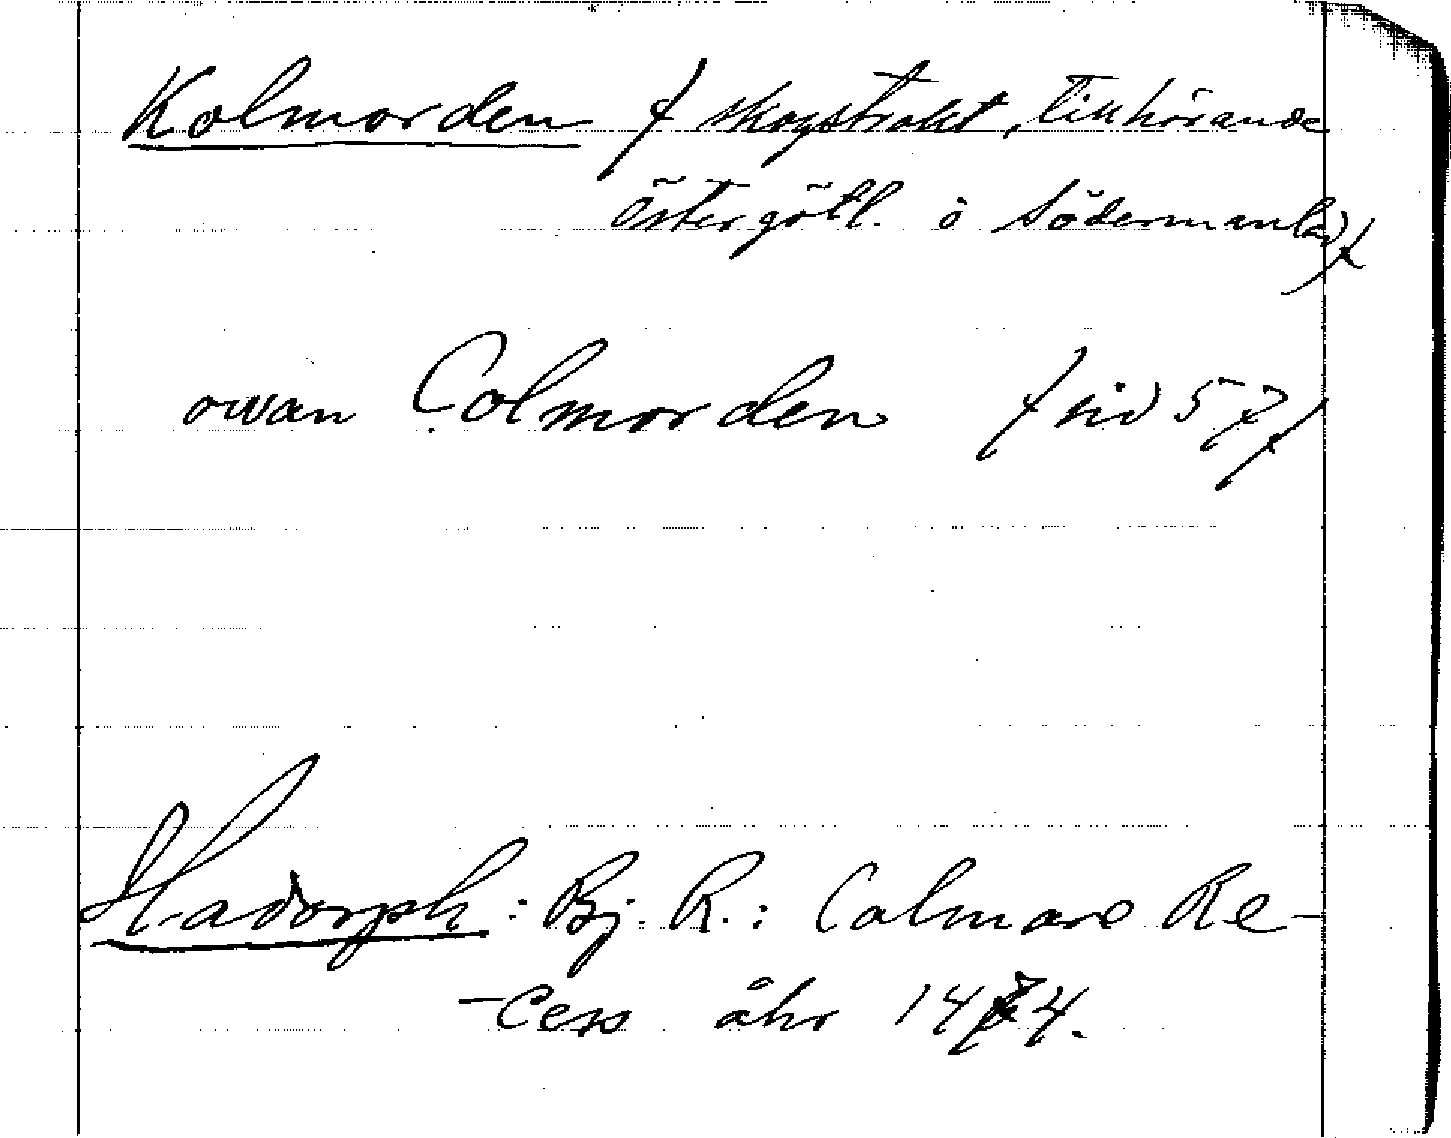 Kolmorden / skogstrakt, tillhörande
östergötl. o södermanld /
owan Colmorden / sid 57 /
Hadorph : Bj. R. : Calmare Re-
-cess åhr 1474.